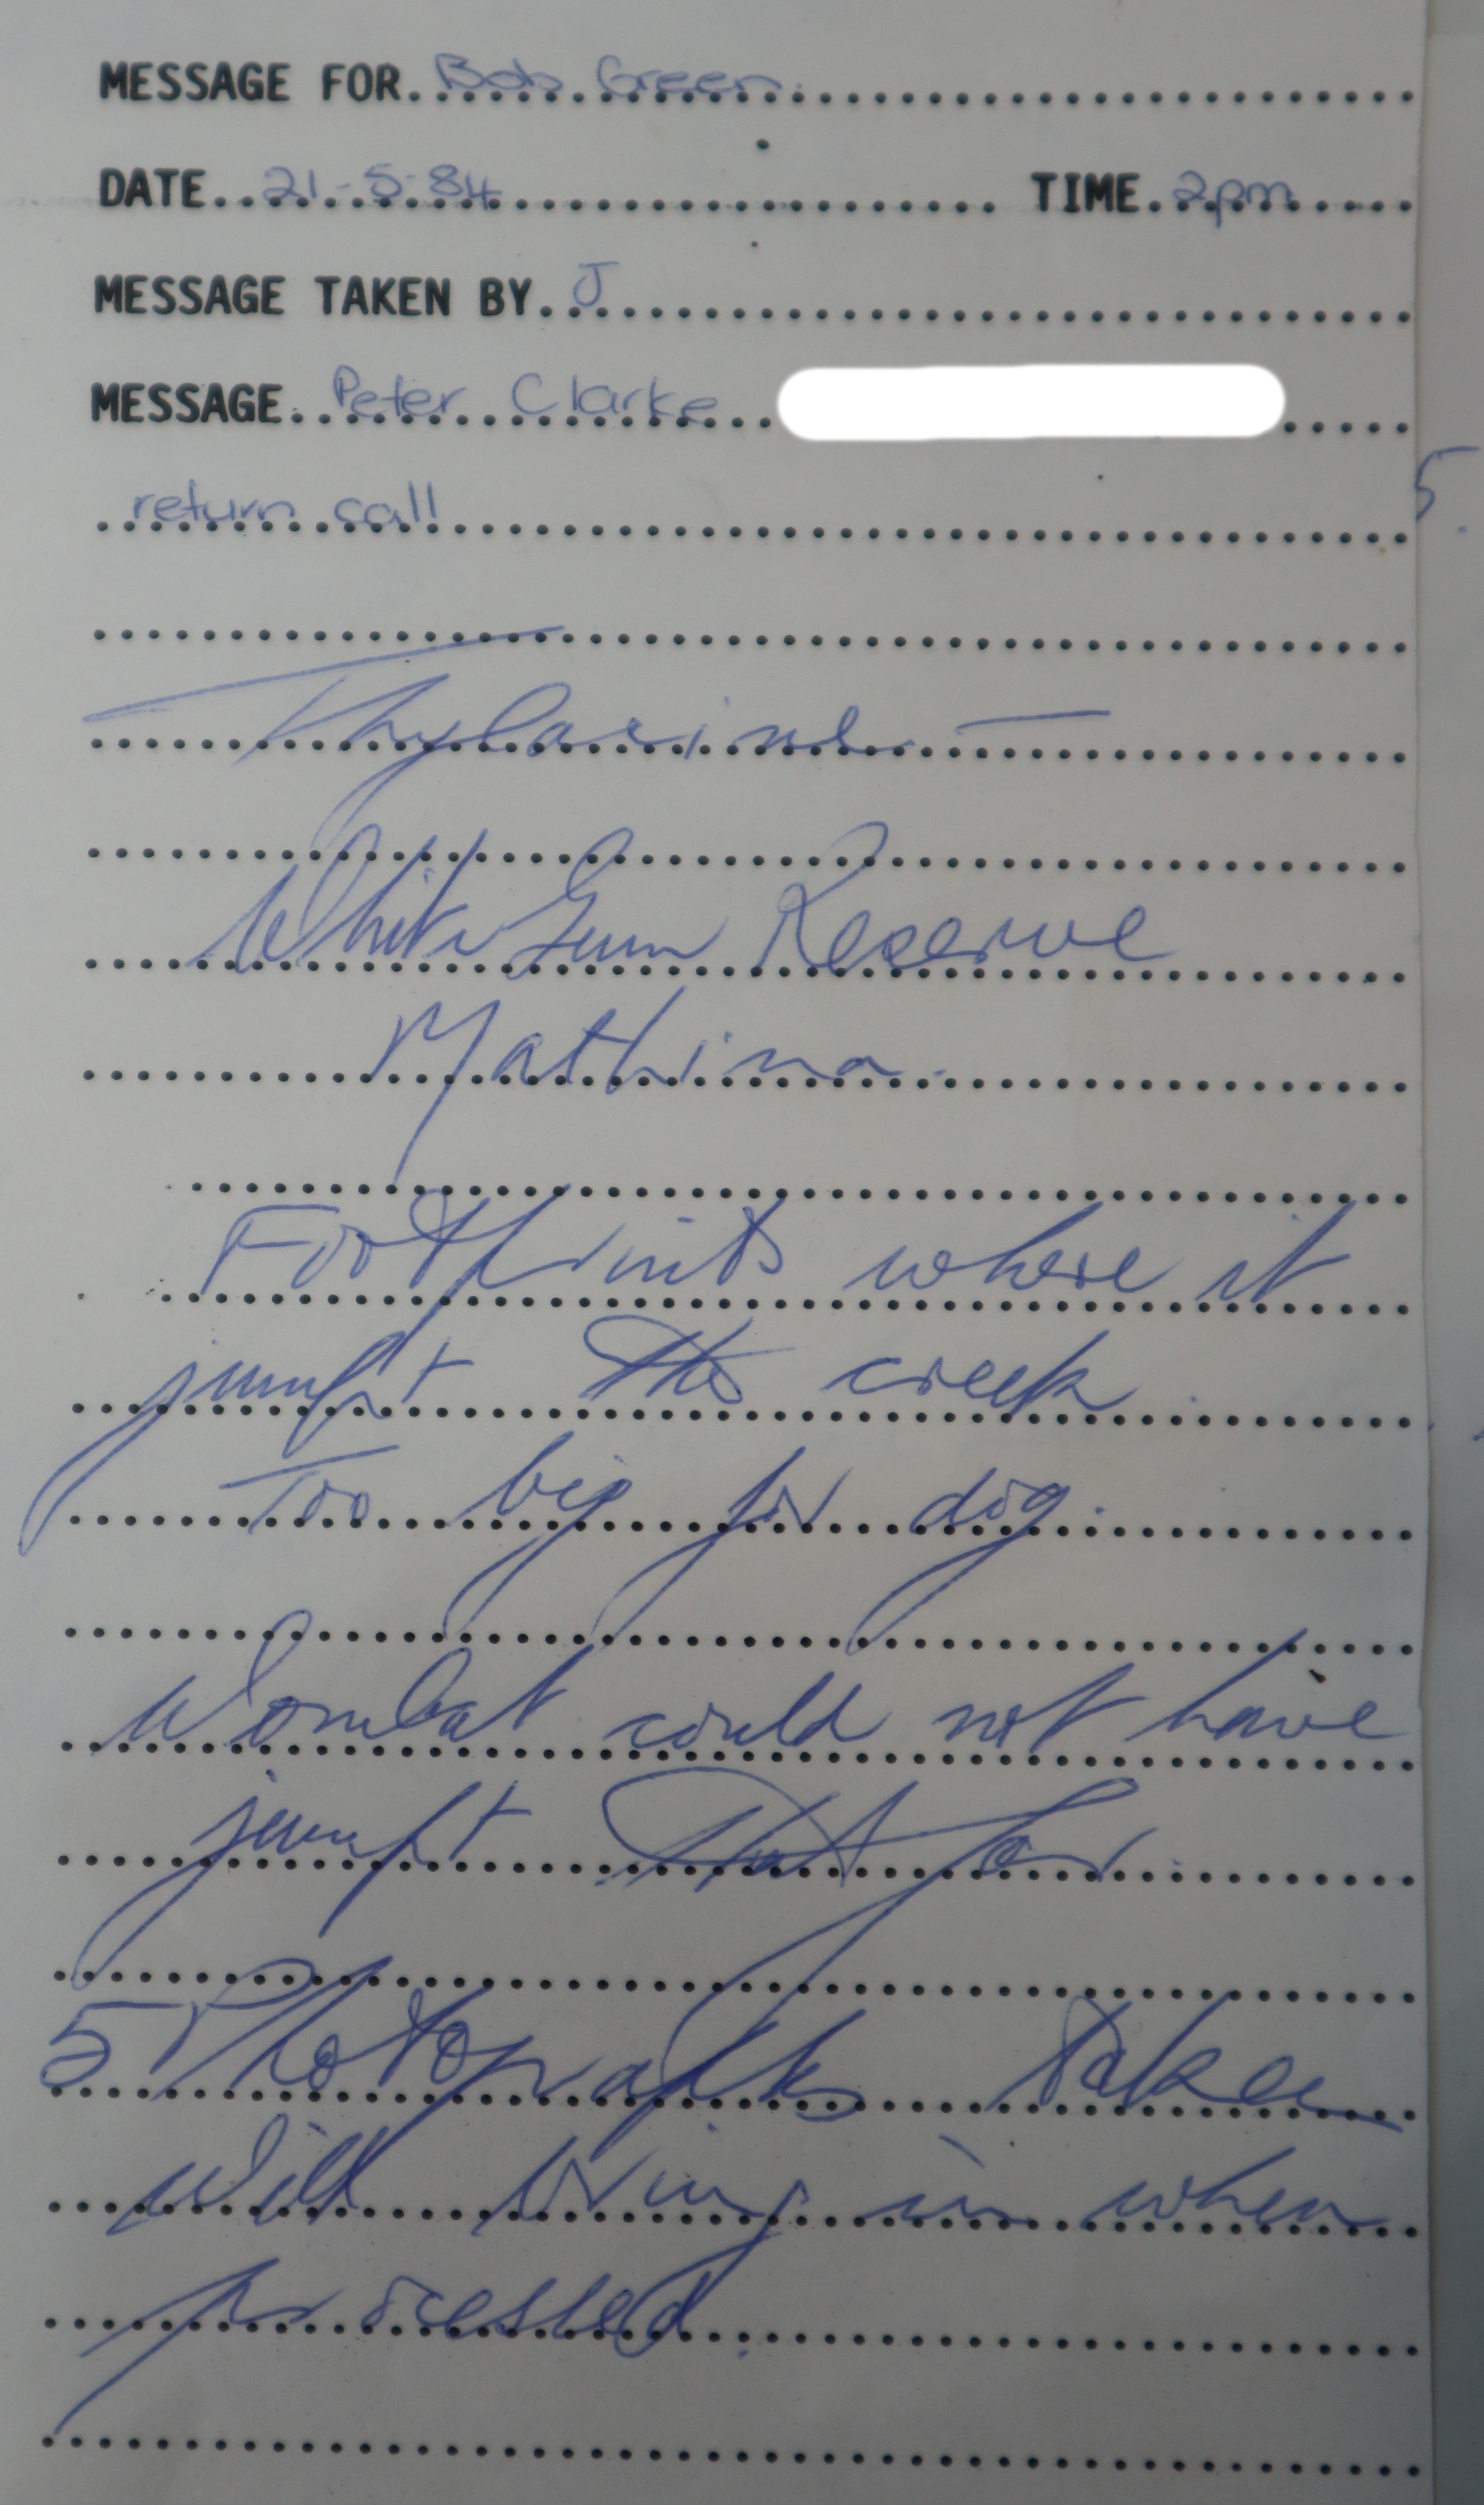 MESSAGE FOR. Bob Green
DATE.. 21-5-84 TIME. 2pm
MESSAGE TAKEN BY. J
MESSAGE. Peter Clarke
return call
Thylacine —
White Gum Reserve
Mathina.
Footprints where it
jumpt the creek.
Too big for dog.
Wombat could not have
jumpt that far.
5 Photographs taken
Will bring in when
processed.
5